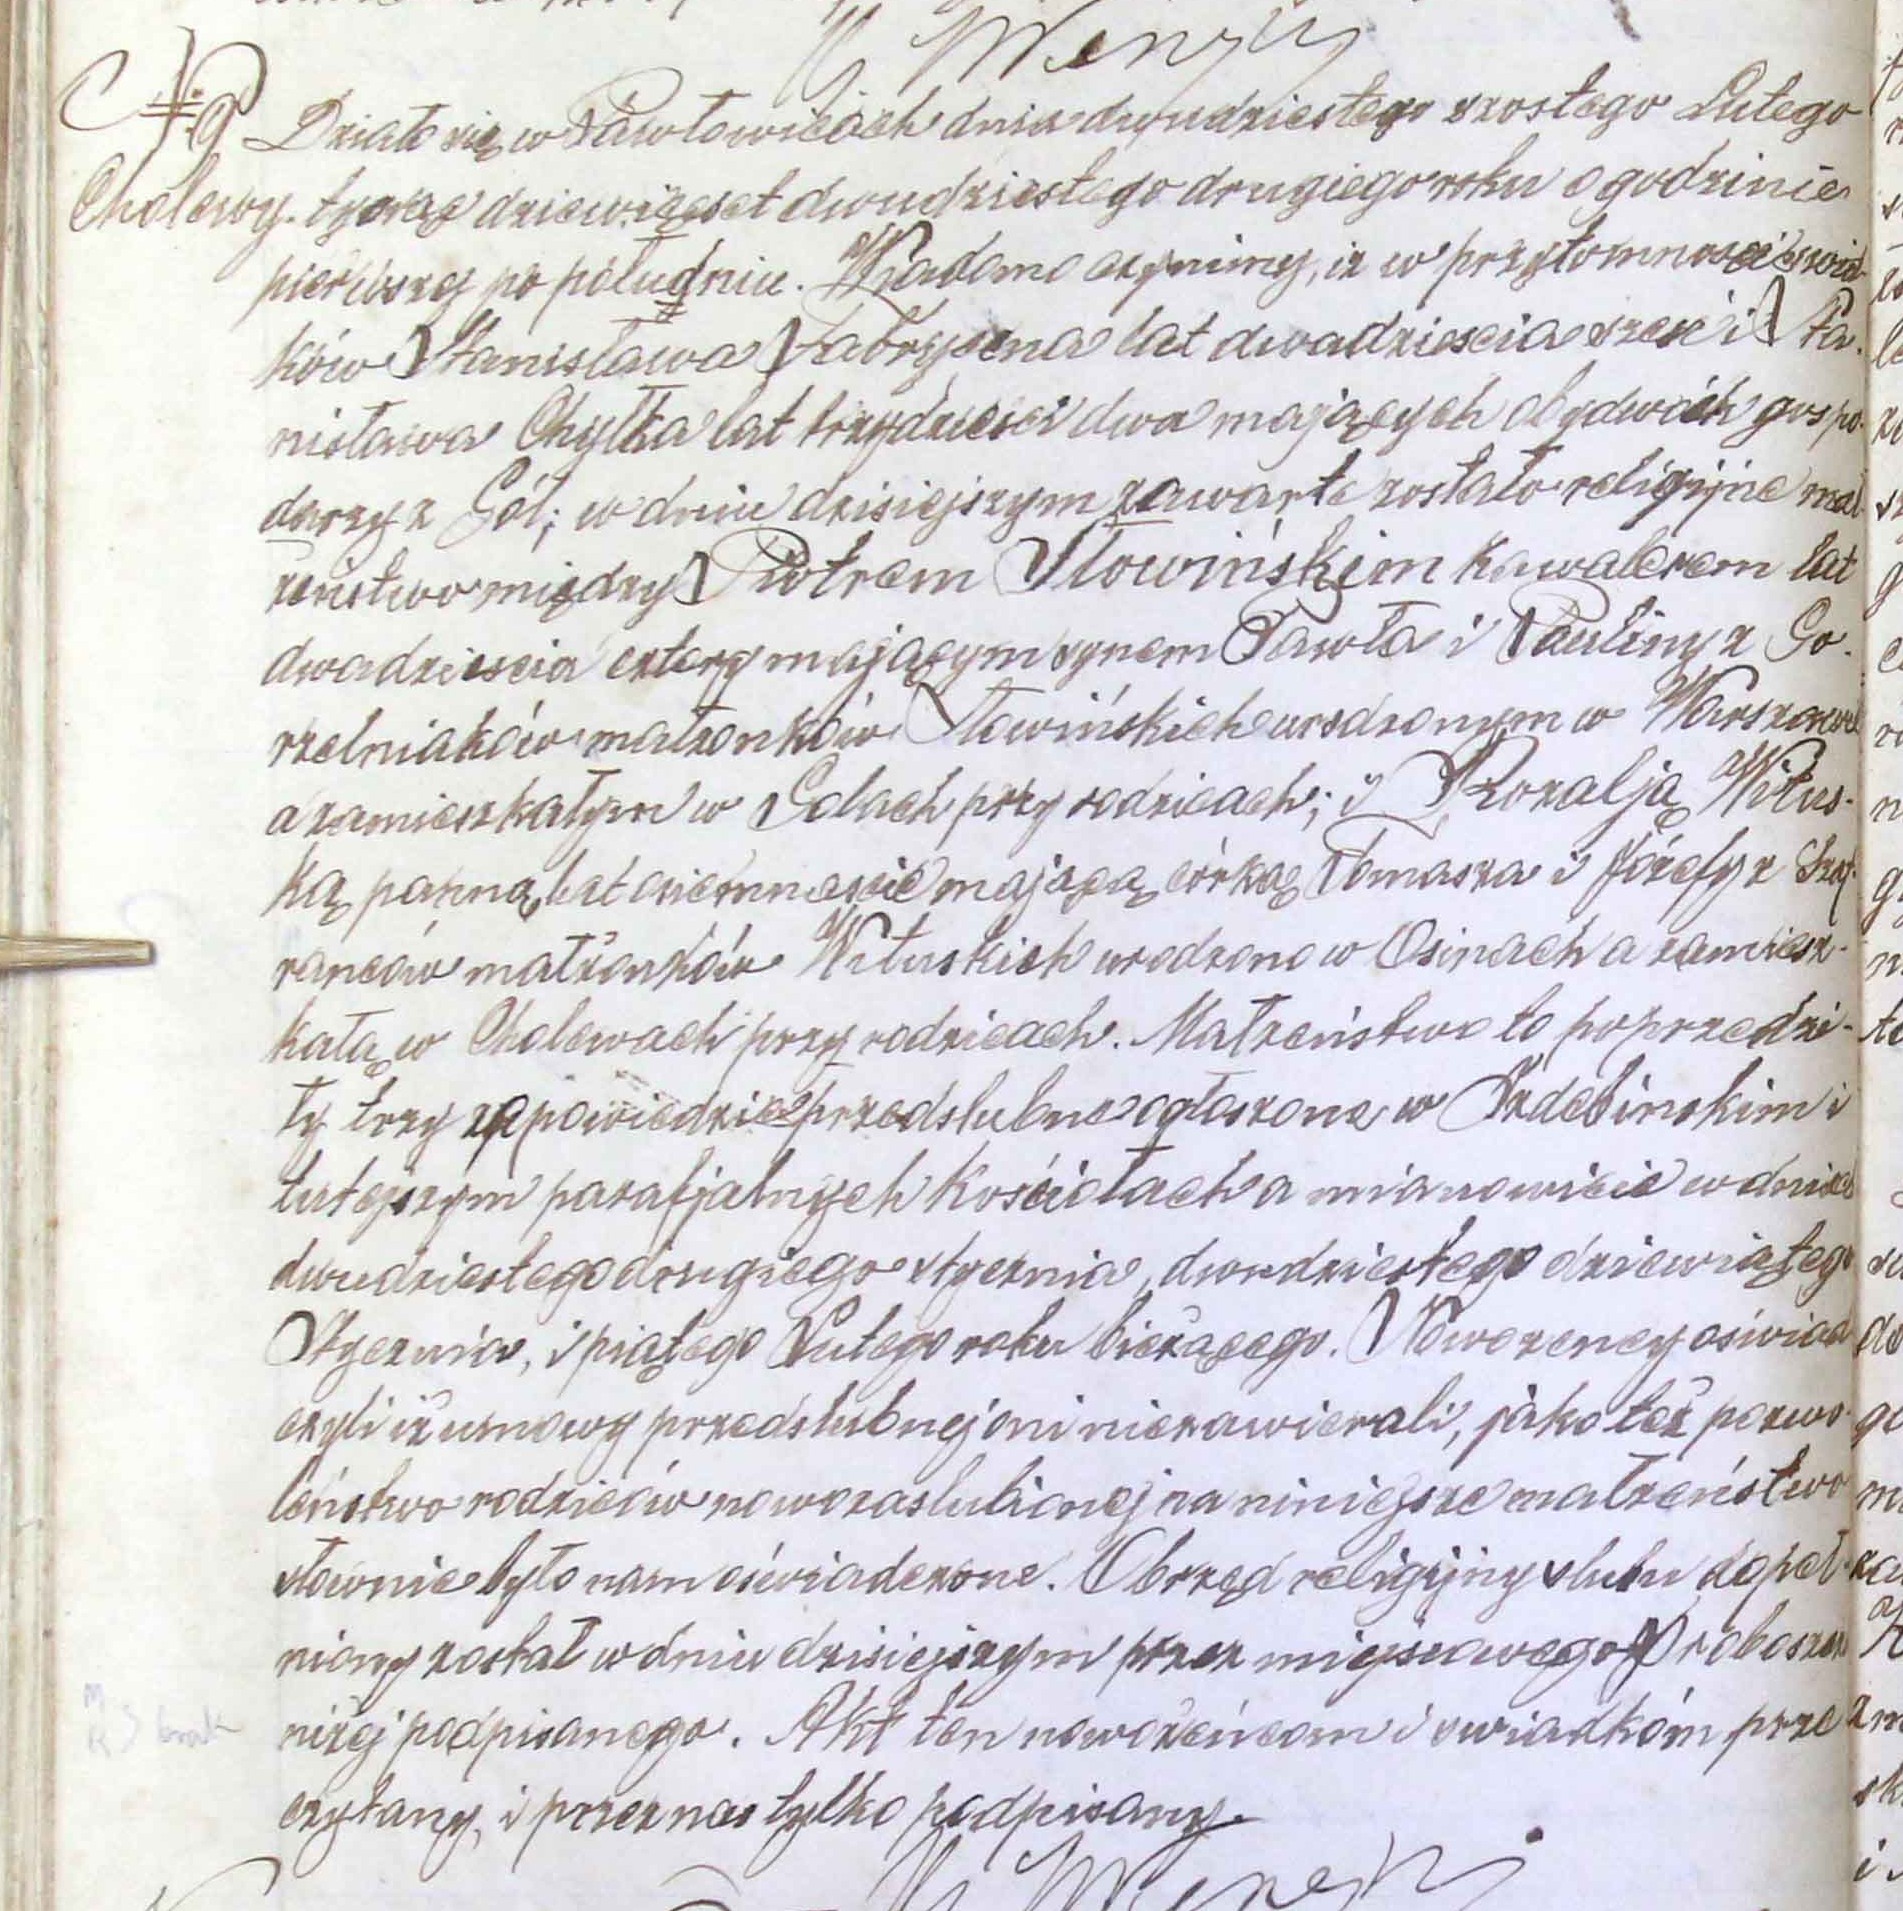 № 9 Działo się w Pawłowicach dnia dwudziestego szostego Lutego
Cholewy. tysrąc dziewięćset dwudziestego drugiego roku o godzinie
pierwszej po południu. Wiadomo czynimy, iz w przytomności swiad-
ków Stanisława Fabrysena lat dwadziescia szesć i Sta-
nisława Chylka lat trzydziesci dwa mających obydwóch gospo-
darzy z Gól; w dniu dzisiejszym zawarte zostało religijne mał-
zeństwo między Piotrem Sławińskim kawalerem lat
dwadziescia cztery mającym synem Pawła i Pauliny z Go-
rzelniaków małzonków Sławińskich urodzonym w Warszawie
a zamieszkałym w Golach przy rodzicach; i Rozalją Witus-
ką panną lat osiemnascie mającą córką Tomasza i Józefy z Szaf-
rańców małżonków Wituskich urodzoną w Osinach a zamiesz-
kałą w Cholewach przy rodzicach. Małżeństwo to poprzedzi-
ły trzy zapowiedzie przedslubne ogłoszone w Izdebinskim i
tutejszym parafjalnych Kościołach a mianowicie w dniach
dwudziestego drugiego stycznia, dwudziestego dziewiątego
Stycznia, i piątego Lutego roku bieżącego. Nowozency oswiad
czyli iż umowy przedslubnej oni nie zawierali, jako też pozwo-
leństwo rodziców nowozaslubionej na niniejsze małzeństwo
słownie było nam oświadczone. Obrzęd religijny slubu dopeł-
niony został w dniu dzisiejszym przez miejscowego Proboszcza
niżej podpisanego. Akt ten nowożeńcom i swiadkóm prze
czytany, i przez nas tylko podpisany.
brak